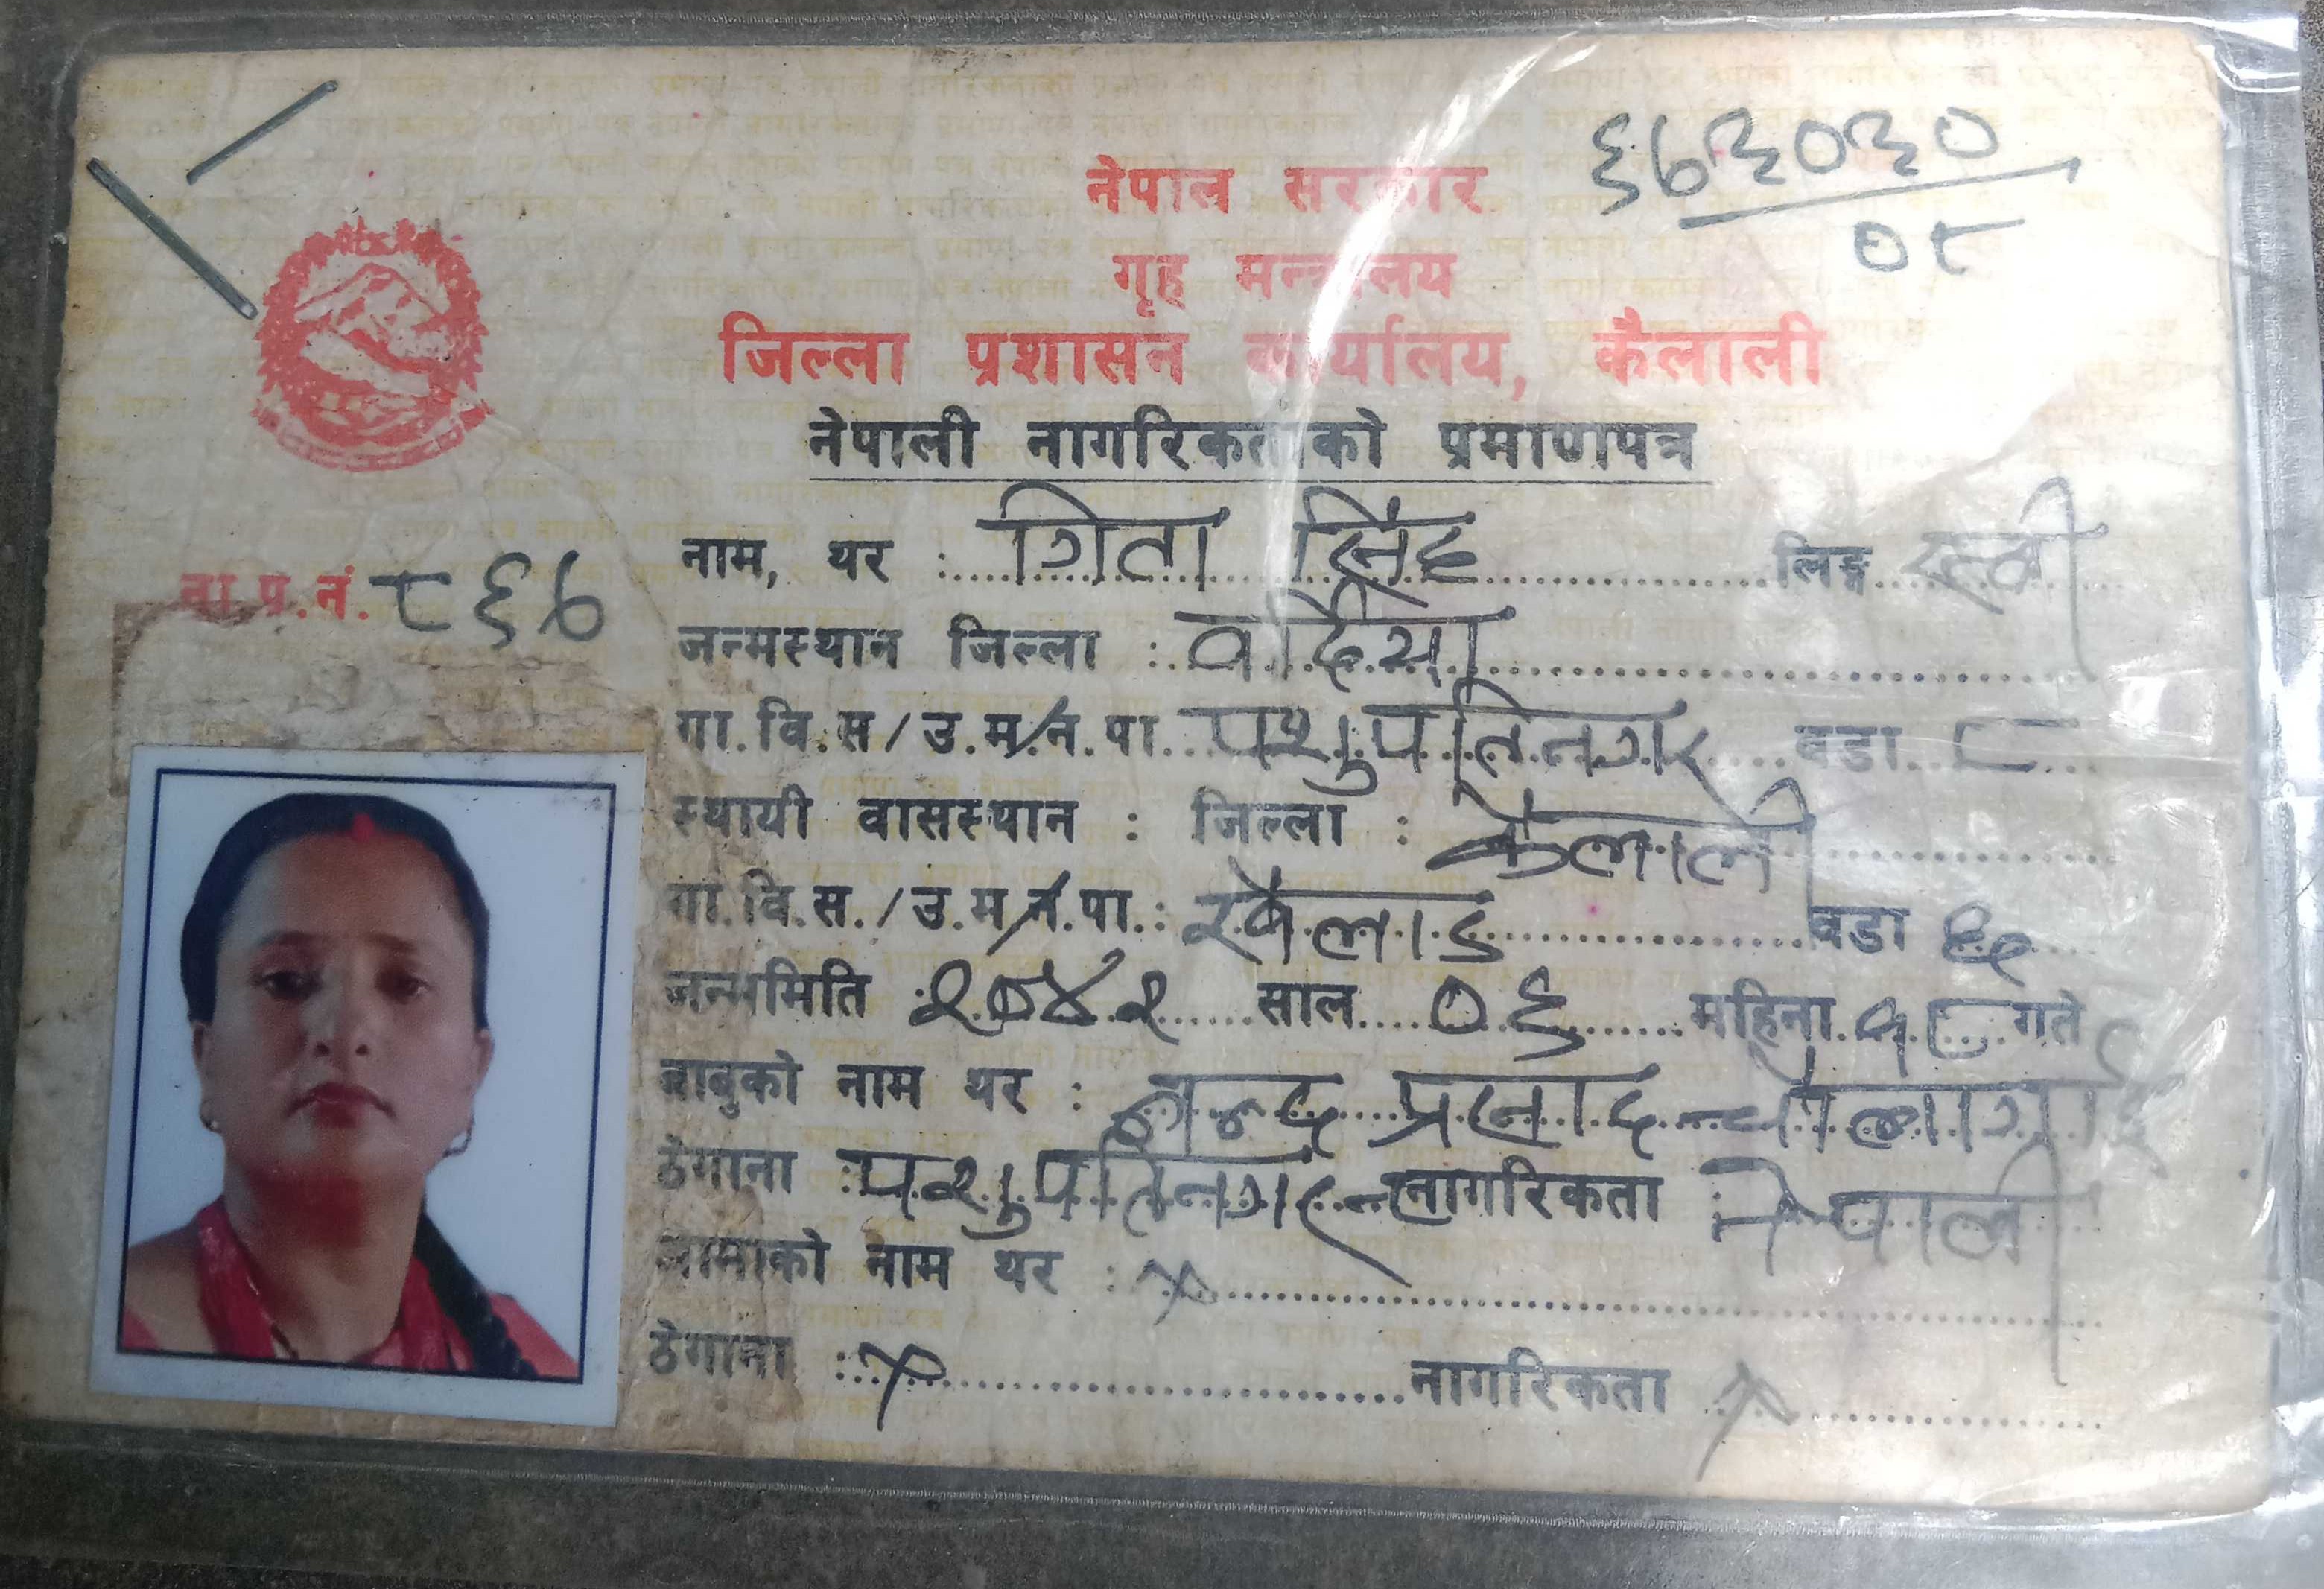 ६७३०३०
०८
नेपाल सरकार
गृह मन्त्रालय
जिल्ला प्रशासन कार्यालय, कैलाली
नेपाली नागरिकताको प्रमाणपत्र
ना.प्र.नं. ८६७
नाम, थर : गिता सिंह लिङ्ग स्त्री
जन्मस्थान जिल्ला : वर्दिया
गा.वि.स/उ.म.न.पा. पशुपतिनगर वडा ८
स्थायी वासस्थान : जिल्ला : कैलाली
गा.वि.स./उ.म.न.पा.: खैलाड वडा
जन्ममिति : २०४२ साल ०६ महिना १८ गते
बाबुको नाम थर : प्रसाद चौलागाई
ठेगाना : पशुपतिनगर नागरिकता : नेपाली
आमाको नाम थर : ×
ठेगाना : × नागरिकता ×